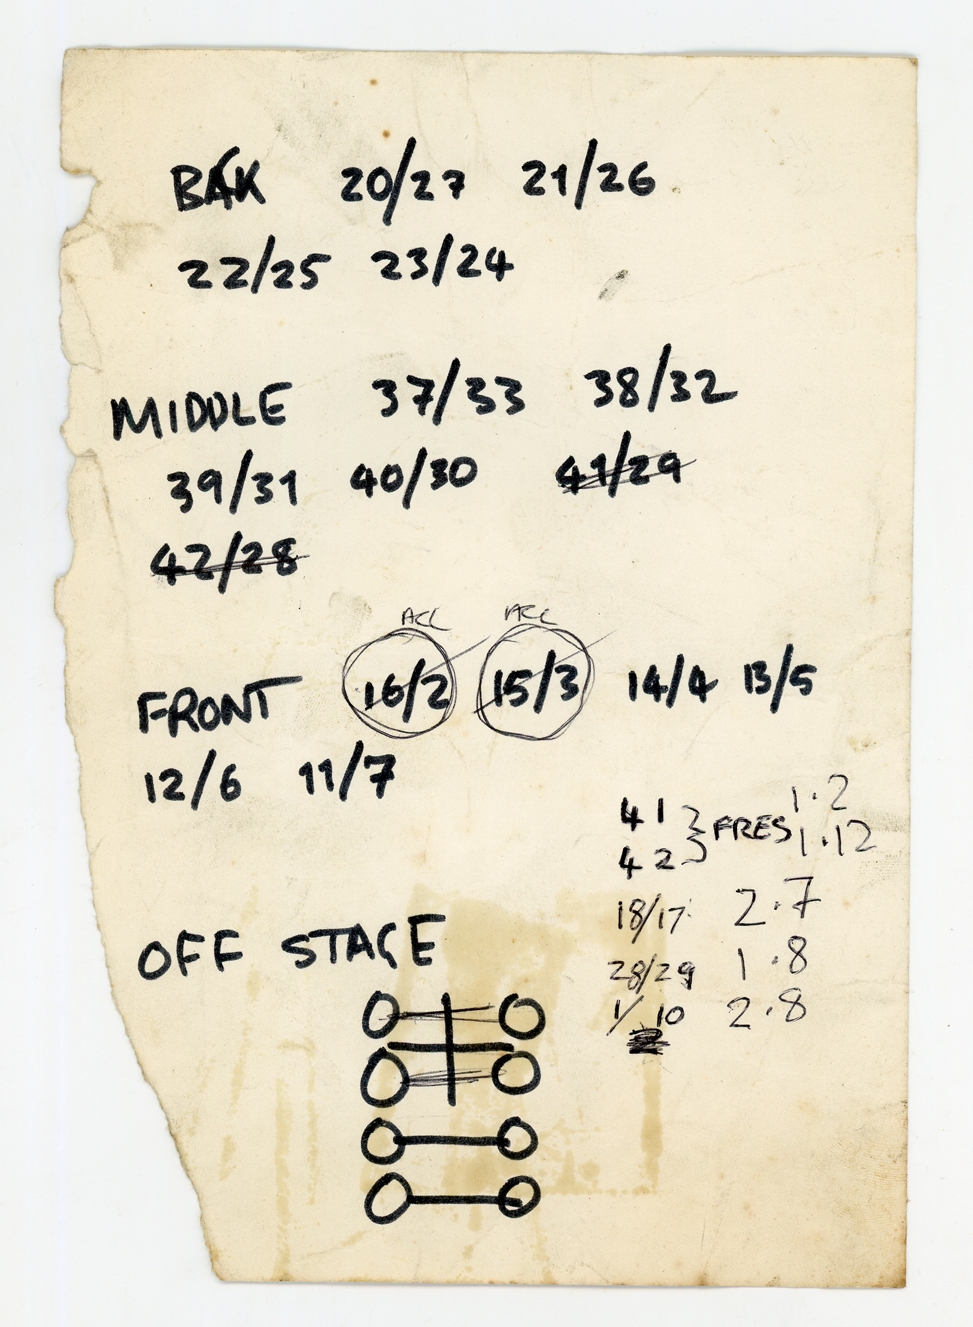 BAK 20/27 21/26
22/25 23/24
MIDDLE 37/33 38/32
39/31 40/30 41/29
42/28
ACC ACC
FRONT 16/2 15/3 14/4 13/5
12/6 11/7
41 } FRES 1.2
42 1.12
18/17 2.7
OFF STAGE
28/29 1.8
1/10 2.8